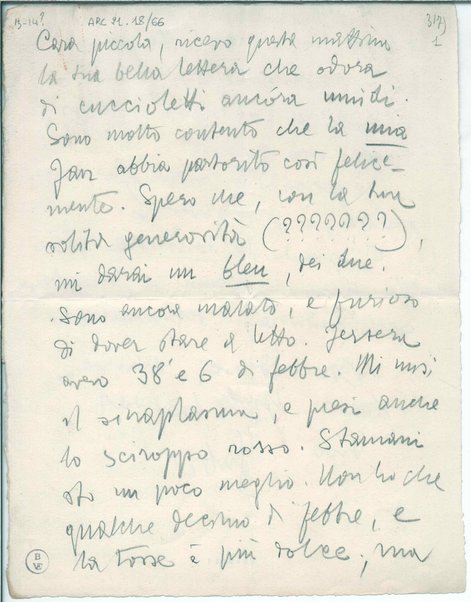 B-14? ARC 21. 18/66 317)
1
Cara piccola, ricevo questa mattina
la tua bella lettera che odora
di cuccioletti ancóra umidi.
Sono molto contento che la mia
Jav abbia partorito così felice-
mente. Spero che, con la tua
solita generosità (???????),
mi darai un bleu, dei due.
Sono ancora malato, e furioso
di dover stare a letto. Jersera
avevo 38 e 6 di febbre. Mi misi
il sinaplasma, e presi anche
lo sciroppo rosso. Stamani
sto un poco meglio. Non ho che
qualche decimo di febbre, e
la tosse è più dolce; ma
B
VE